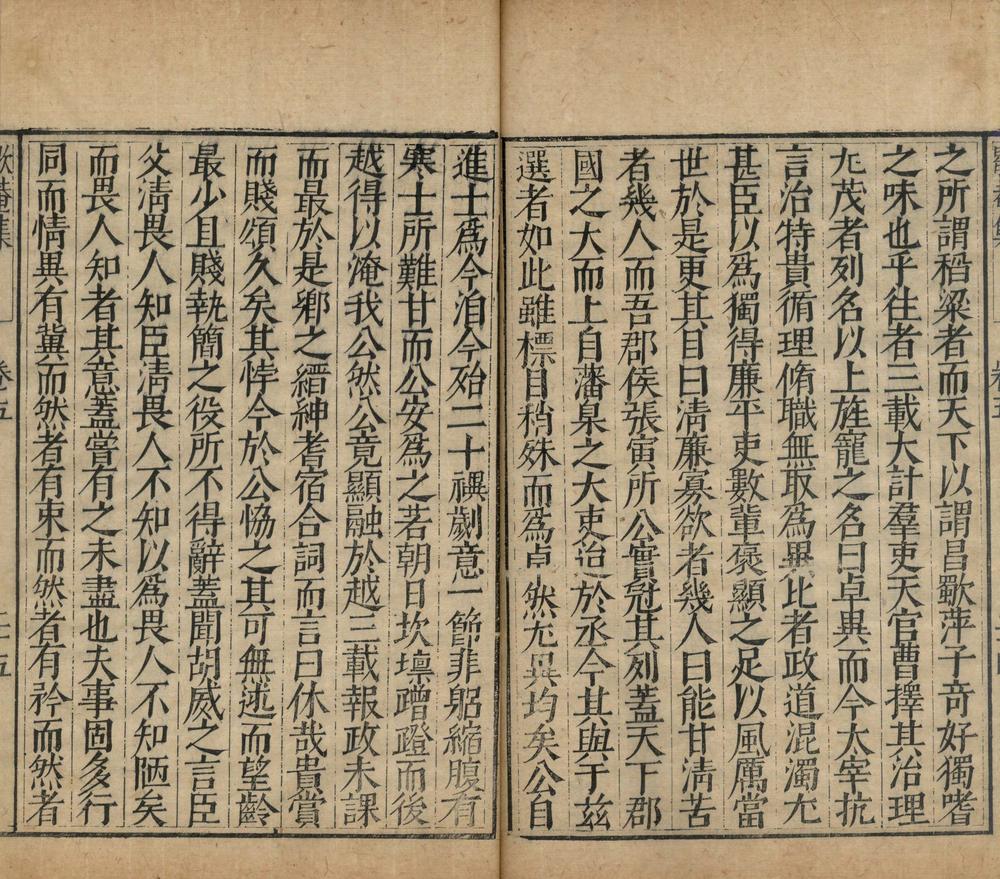 之所謂稻粱者而天下以謂昌歜萍子奇好獨嗜
之味也乎往者三載大計羣吏天官曹擇其治理
尤茂者列名以上旌寵之名曰卓異而今太宰抗
言治特貴循理脩職無取爲異比者政道混濁尤
甚臣以爲獨得廉平吏數輩褒顯之足以風厲當
世於是更其目曰淸廉寡欲者幾人曰能甘淸苦
者幾人而吾郡侯張寅所公實冠其列蓋天下郡
國之大而上自藩臬之大吏迨於丞令其與于玆
選者如此雖標目稍殊而爲卓然尤異均矣公自
進士爲令洎今殆二十禩劌意一節非躬縮腹有
寒士所難甘而公安爲之若朝日坎壈蹭蹬而後
越得以淹我公然公竟顯融於越三載報政未課
而最於是鄉之縉紳耆宿合詞而言曰休哉貴賞
而賤頌久矣其悖今於公恊之其可無述而望齡
最少且賤執簡之役所不得辭蓋聞胡威之言臣
父淸畏人知臣淸畏人不知以爲畏人不知陋矣
而畏人知者其意蓋嘗有之未盡也夫事固多行
同而情異有冀而然者有束而然者有矜而然者
歇菴集
卷五
二十五